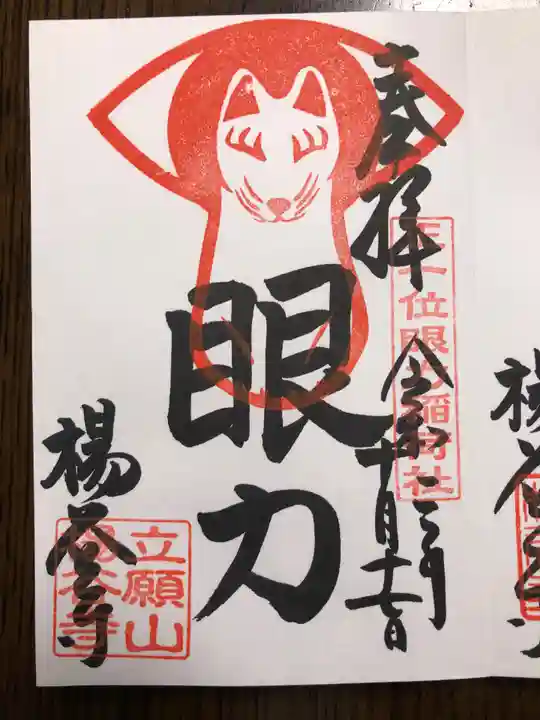 奉拝
正一位眼力稲荷社
令和二年十月十七日
眼力
楊谷寺
立願山
楊谷寺